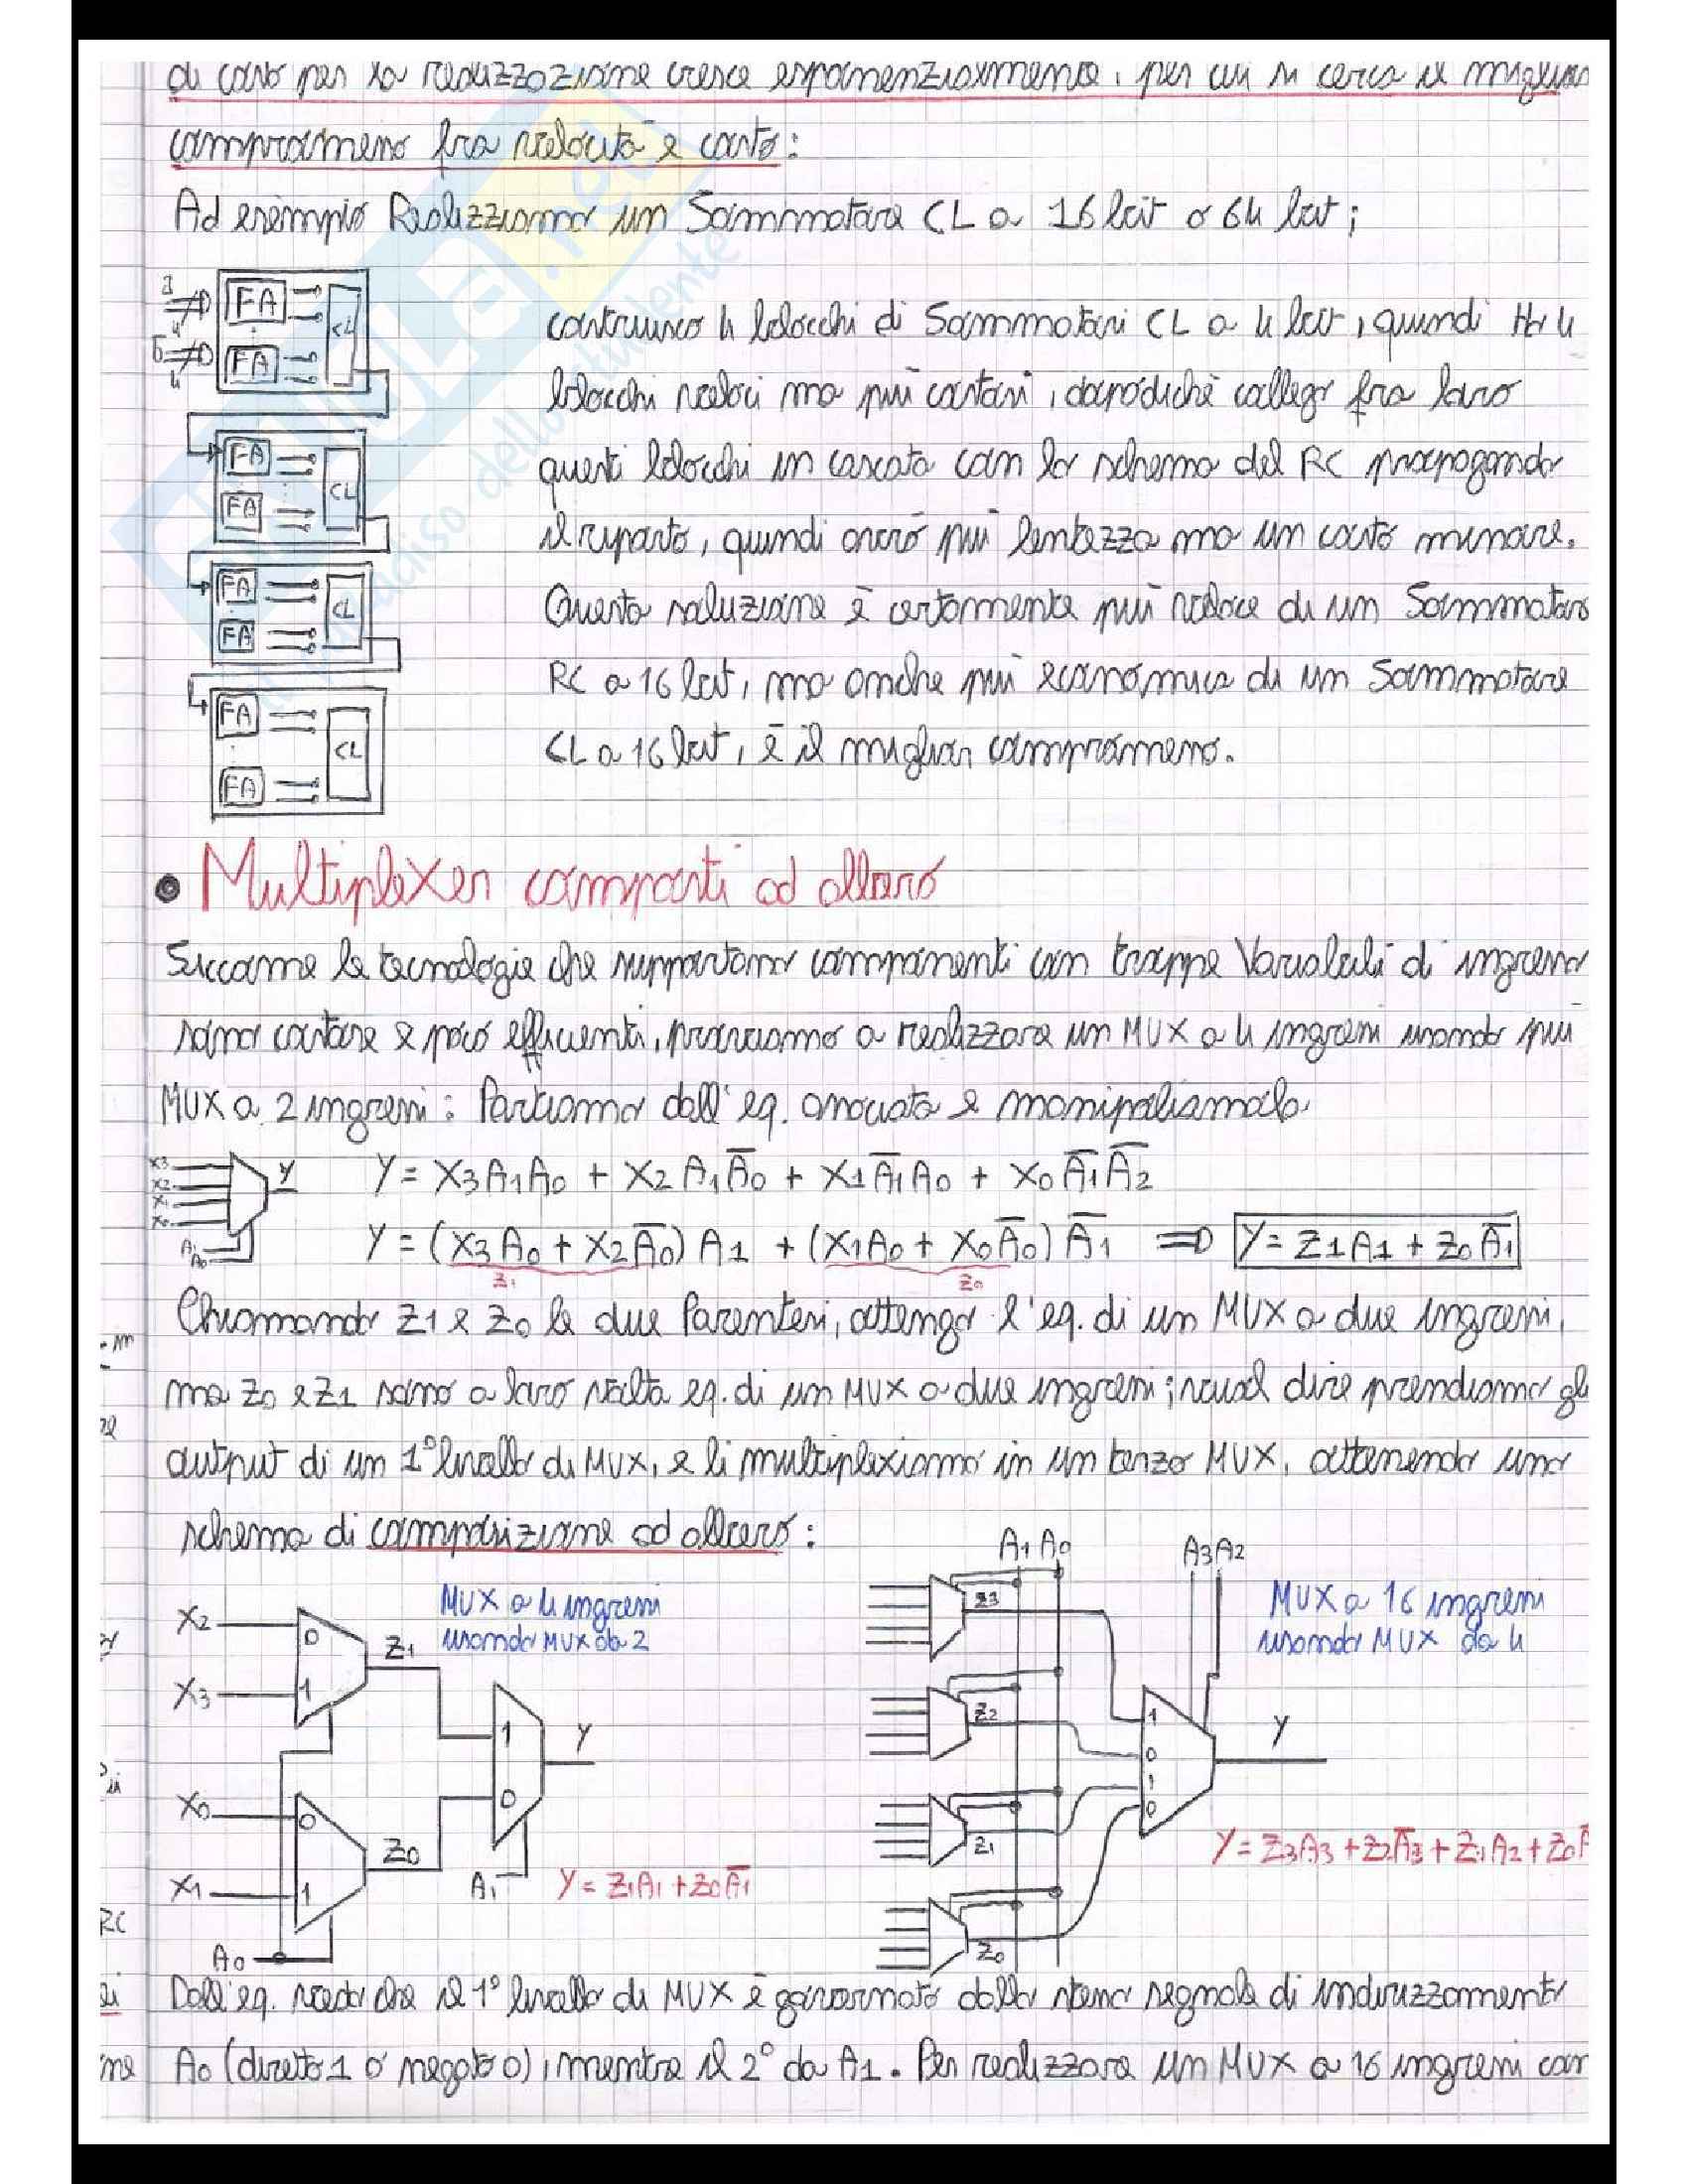 di costo per la realizzazione cresce esponenzialmente, per cui si cerca il miglior
compromesso fra velocità e costo:
Ad esempio Realizziamo un Sommatore CL a 16 bit o 64 bit;
costruisco 4 blocchi di Sommatori CL a 4 bit, quindi Ho 4
blocchi veloci ma più costosi, dopodichè collego fra loro
questi blocchi in cascata con lo schema del RC propagando
il riporto, quindi avrò più lentezza ma un costo minore.
Questa soluzione è certamente più veloce di un Sommatore
RC a 16 bit, ma anche più economica di un Sommatore
CL a 16 bit, è il miglior compromesso.
FA
FA
CL
FA
FA
CL
FA
FA
CL
FA
FA
CL
• Multiplexer composti ad albero
Siccome le tecnologie che supportano componenti con troppe Variabili di ingresso
sono costose e poco efficienti, proviamo a realizzare un MUX a 4 ingressi usando più
MUX a 2 ingressi: Partiamo dall'eq. associata e manipoliamola
X3
X2
X1
X0
Y
A1
A0
Y = X3A1A0 + X2A1A̅0 + X1A̅1A0 + X0A̅1A̅2
Y = (X3A0 + X2A̅0) A1 + (X1A0 + X0A̅0) A̅1 ⇒ Y = Z1A1 + Z0A̅1
Z1 Z0
Chiamando Z1 e Z0 le due Parentesi, ottengo l'eq. di un MUX a due ingressi,
ma Z0 e Z1 sono a loro volta eq. di un MUX a due ingressi; vuol dire prendiamo gl
output di un 1° livello di MUX, e li multiplexiamo in un terzo MUX, ottenendo uno
schema di composizione ad albero:
MUX a 4 ingressi
usando MUX da 2
X2
X3
0
1
Z1
X0
X1
0
1
Z0
A0
1
0
Y
A1
Y = Z1A1 + Z0A̅1
A1 A0
A3 A2
MUX a 16 ingressi
usando MUX da 4
Z3
Z2
Z1
Z0
1
0
1
0
Y
Y = Z3A3 + Z2A̅3 + Z1A2 + Z0A̅
Dall'eq. vedo che il 1° livello di MUX è governato dallo stesso segnale di indirizzamento
A0 (diretto 1 o negato 0), mentre il 2° da A1. Per realizzare un MUX a 16 ingressi con
RC